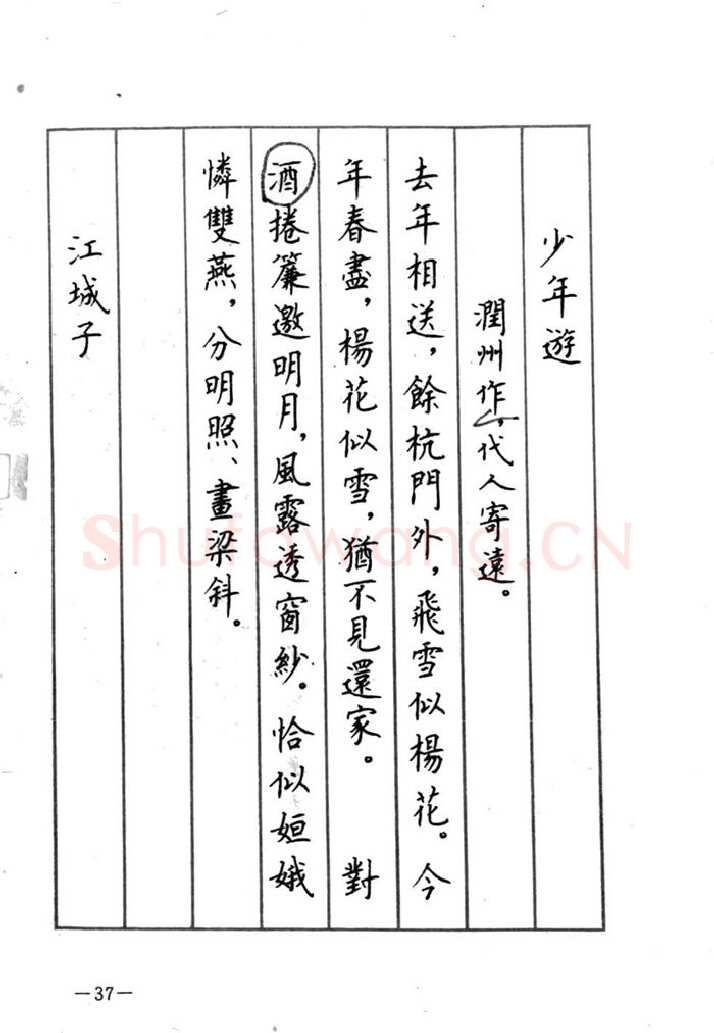 少年遊
潤州作，代人寄遠。
去年相送，餘杭門外，飛雪似楊花。今
年春盡，楊花似雪，猶不見還家。　對
酒捲簾邀明月，風露透窗紗。恰似姮娥
憐雙燕，分明照、畫梁斜。
江城子
Shufawang.CN
—37—